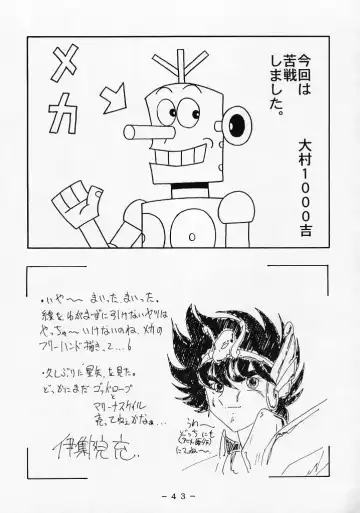 今回は
苦戦
しました。
大村1000吉
メカ
・いや〜 まいった まいった。
線をわかまずに引けないヤツは
やっちゃ〜いけないのね、メカの
フリーハンド描きって…。
・久しぶりに「星矢」を見た。
どっかにまだ ゴッドローブ
と
マリーナスケイル
売ってねぇかなぁ…
伊集院充
うわ〜
どっちにも
にてね〜
－43－